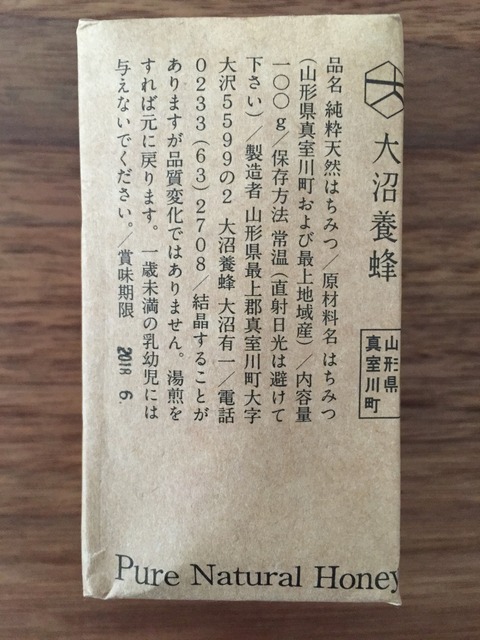 大沼養蜂
山形県
真室川町
品名 純粋天然はちみつ／原材料名 はちみつ
(山形県真室川町および最上地域産)／内容量
一〇〇g／保存方法 常温(直射日光は避けて
下さい)／製造者 山形県最上郡真室川町大字
大沢5599の2 大沼養蜂 大沼有一／電話
0233(63)2708／結晶することが
ありますが品質変化ではありません。湯煎を
すれば元に戻ります。一歳未満の乳幼児には
与えないでください。／賞味期限 2018 6.
Pure Natural Honey